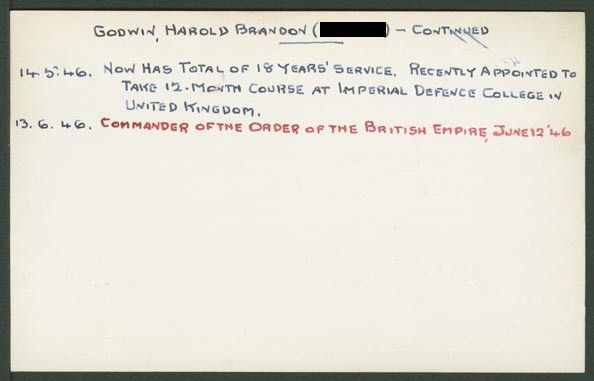 GODWIN, HAROLD BRANDON () – CONTINUED
14.5.46. NOW HAS TOTAL OF 18 YEARS' SERVICE. RECENTLY APPOINTED TO
TAKE 12-MONTH COURSE AT IMPERIAL DEFENCE COLLEGE IN
UNITED KINGDOM.
13.6.46. COMMANDER OF THE ORDER OF THE BRITISH EMPIRE, JUNE 12'46